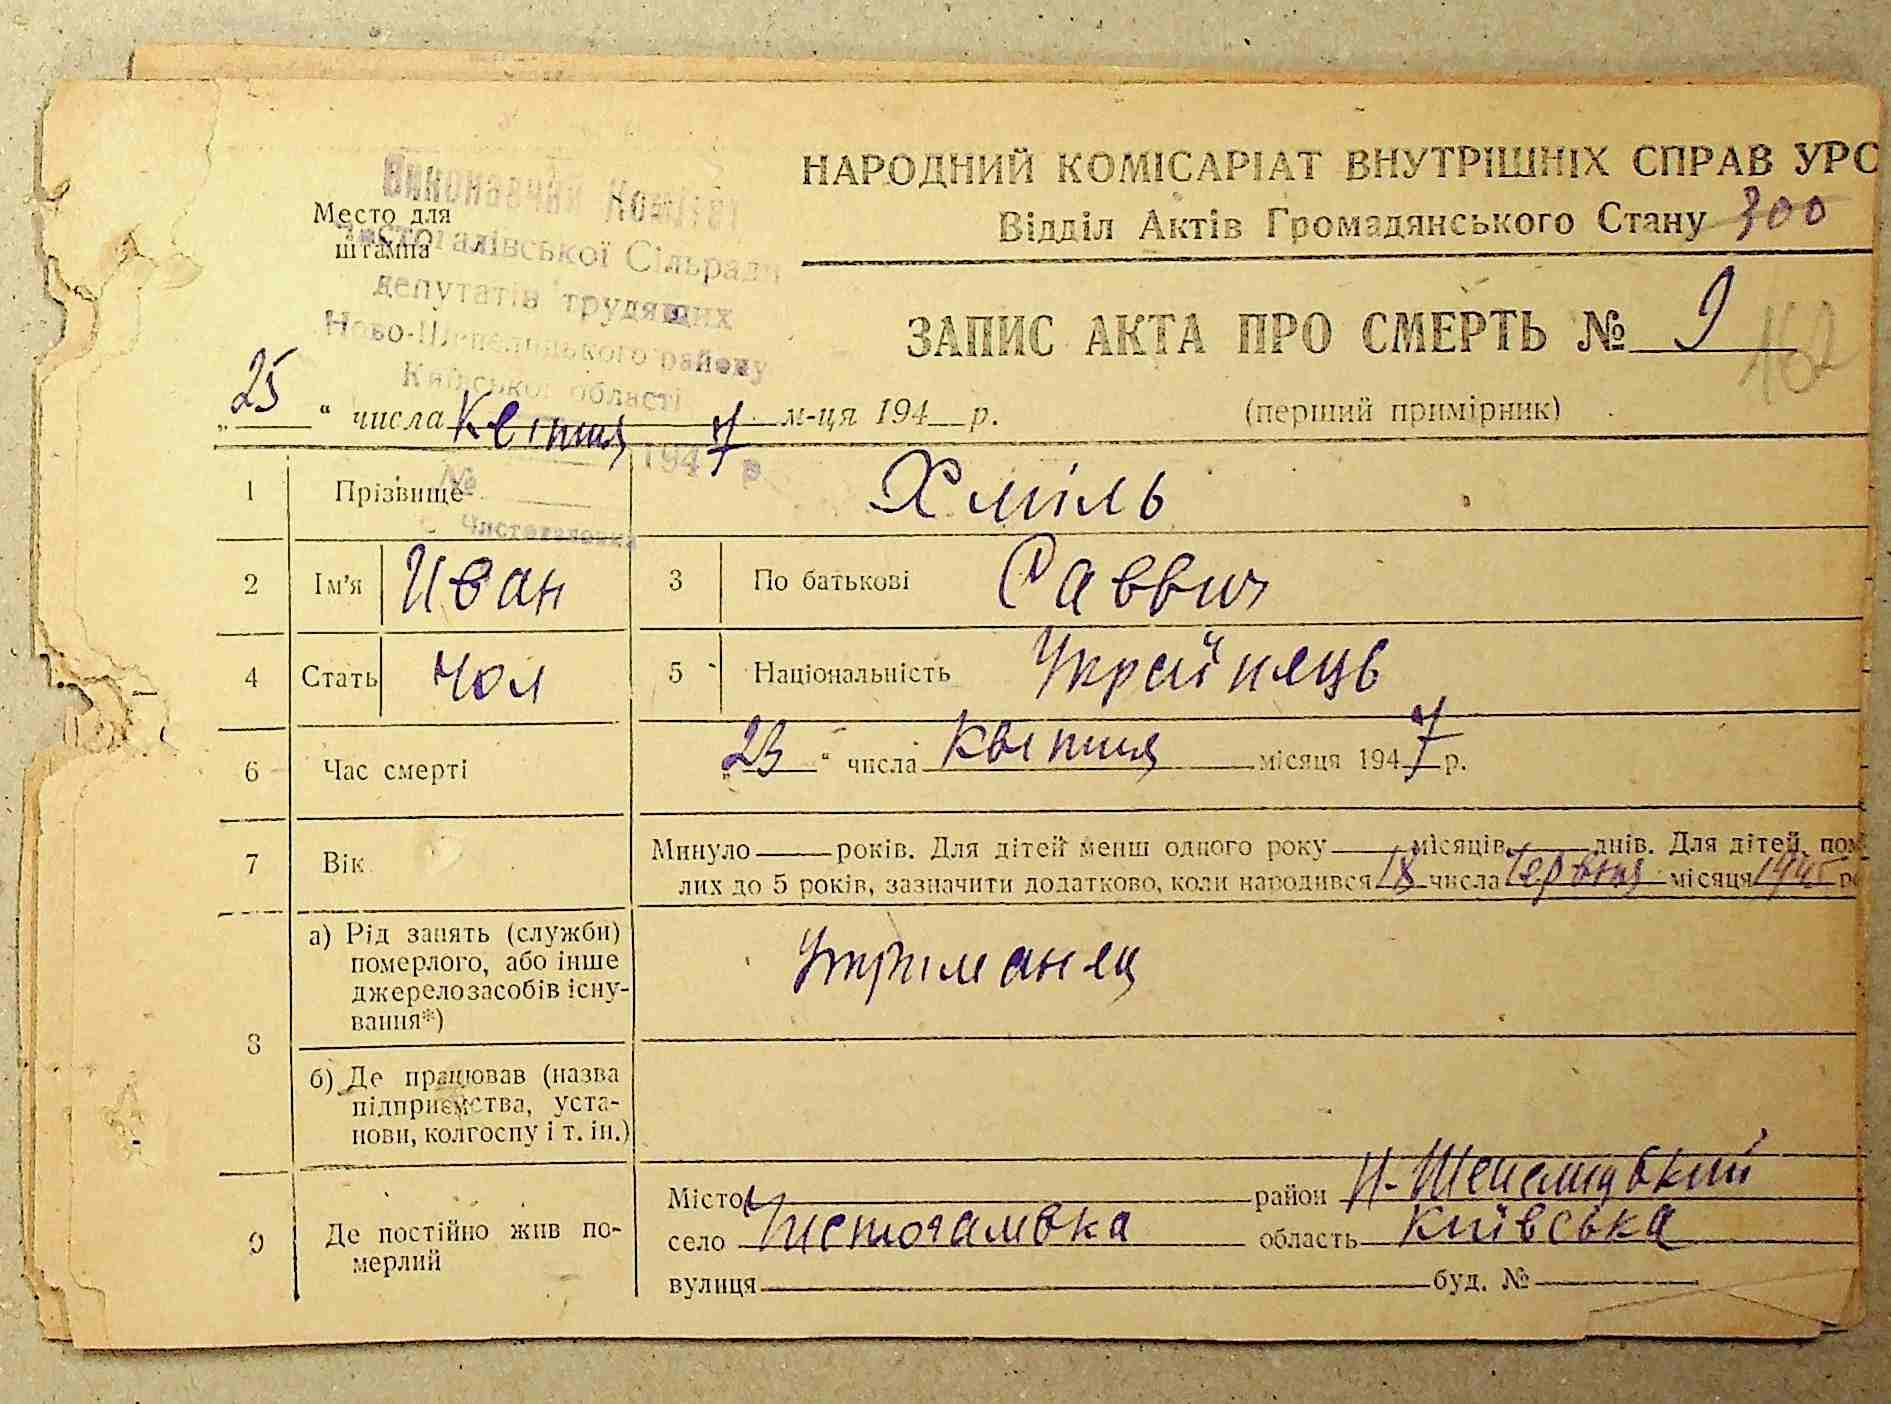 НАРОДНИЙ КОМІСАРІАТ ВНУТРІШНІХ СПРАВ УРС
Відділ Актів Громадянського Стану 300
Место для
штампа
Виконавчий Комітет
Чистогалівської Сільради
депутатів трудящих
Ново-Шепелицького району
Київської області
ЗАПИС АКТА ПРО СМЕРТЬ № 9
162
„25“ числа Квітня м-ця 194 р.
(перший примірник)
1947 р
№
Чистогаловка
1 Прізвище Хміль
2 Ім'я Иван 3 По батькові Саввич
4 Стать Чол 5 Національність Україñець
6 Час смерті „23“ числа Квітня місяця 1947 р.
7 Вік Минуло років. Для дітей менш одного року місяців днів. Для дітей, пом
лих до 5 років, зазначити додатково, коли народився 18 числа Червня місяця 1945 р
8 а) Рід занять (служби)
померлого, або інше
джерело засобів існу-
вання*)
Утриманец
б) Де працював (назва
підприємства, уста-
нови, колгоспу і т. ін.)
9 Де постійно жив по-
мерлий
Місто район Н-Шепелицький
село Чистогаловка область Київська
вулиця буд. №